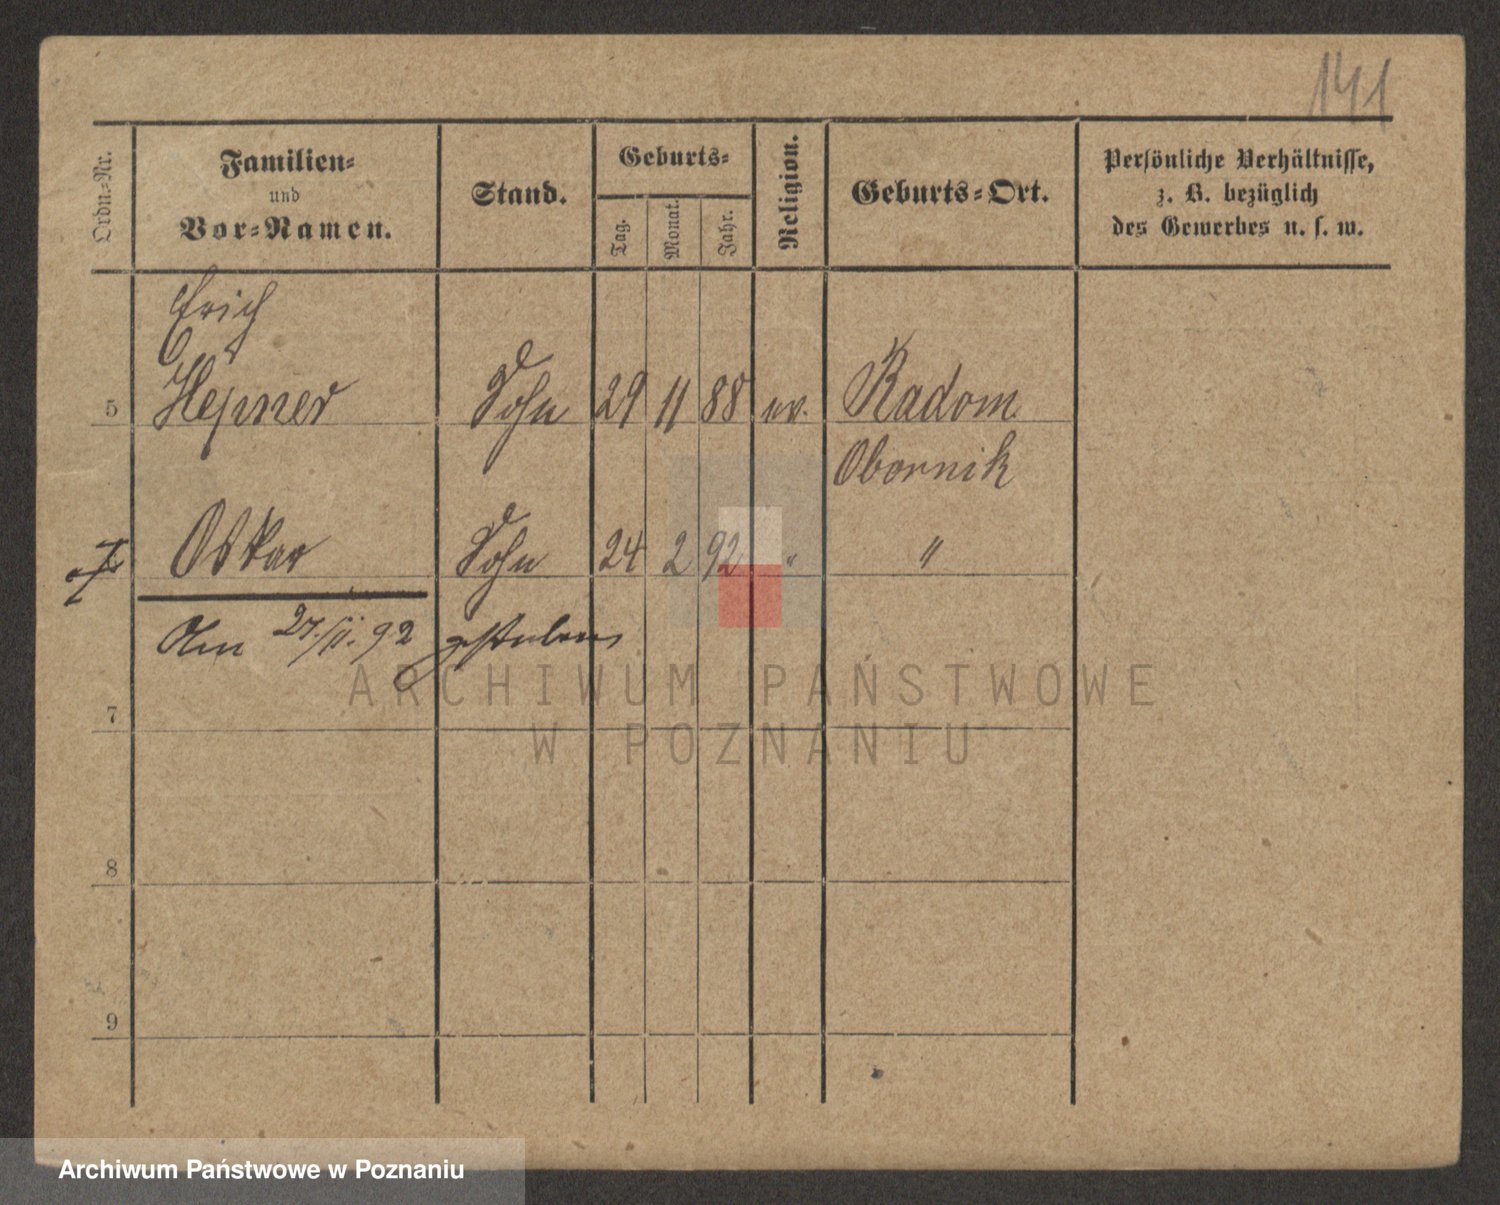 141
Ordn.-Nr.
Familien-
und
Vor-Namen.
Stand.
Geburts-
Tag.
Monat.
Jahr.
Religion.
Geburts-Ort.
Persönliche Verhältnisse,
z. B. bezüglich
des Gewerbes u. s. w.
Erich
5 Hepner Sohn 29 11 88 ev. Radom
Obornik
Oskar Sohn 24 2 92 " "
Am 27./11. 92 gestorben
ARCHIWUM PAŃSTWOWE
W POZNANIU
7
8
9
Archiwum Państwowe w Poznaniu